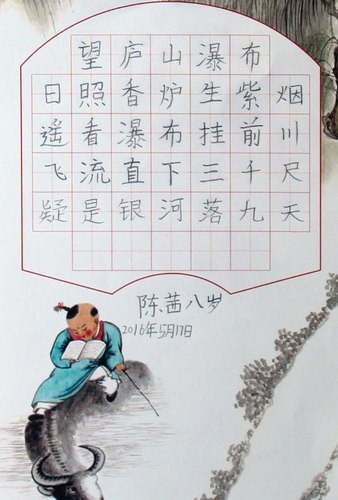 望庐山瀑布
日照香炉生紫烟
遥看瀑布挂前川
飞流直下三千尺
疑是银河落九天
陈茜八岁
2016年5月17日